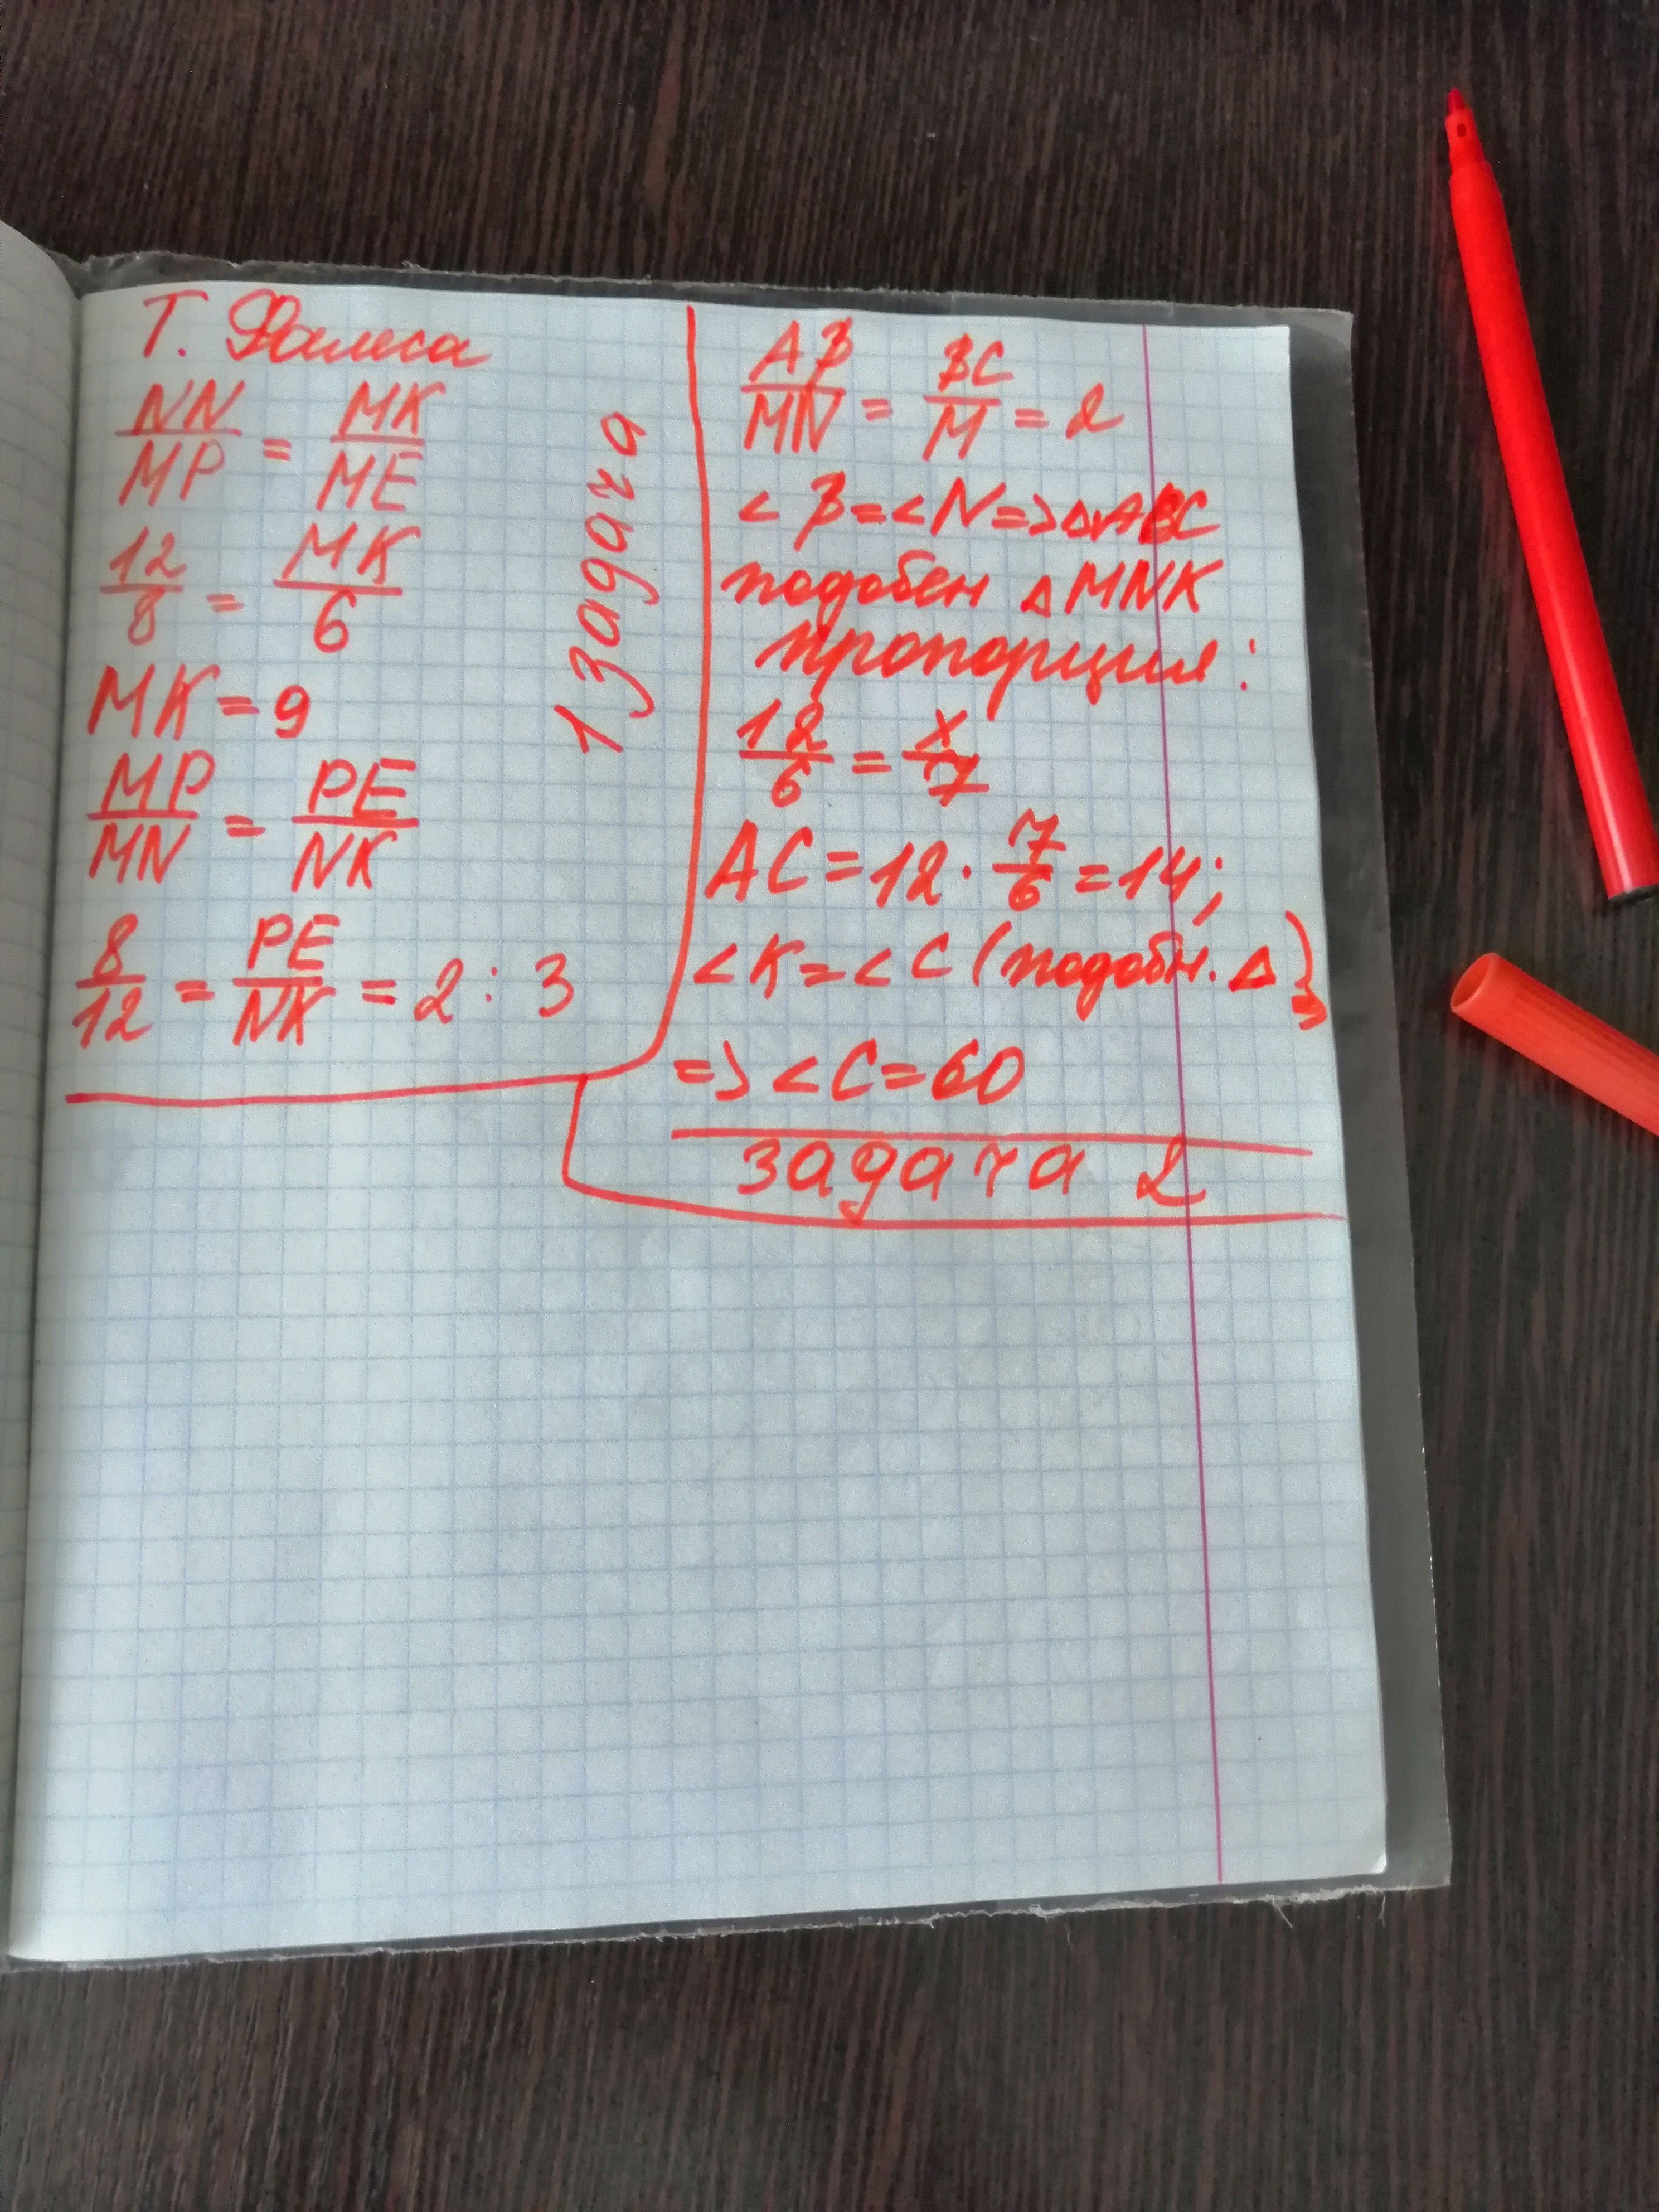 Т. Фалеса
NN/MP = MK/ME
12/8 = MK/6
MK = 9
MP/MN = PE/NK
8/12 = PE/NK = 2 : 3
1 задача
AB/MN = BC/M = 2
< B = < N => △ ABC
подобен △ MNK
пропорция:
12/6 = x/7
AC = 12 · 7/6 = 14;
< K = < C (подобн. △)
=> < C = 60
задача 2